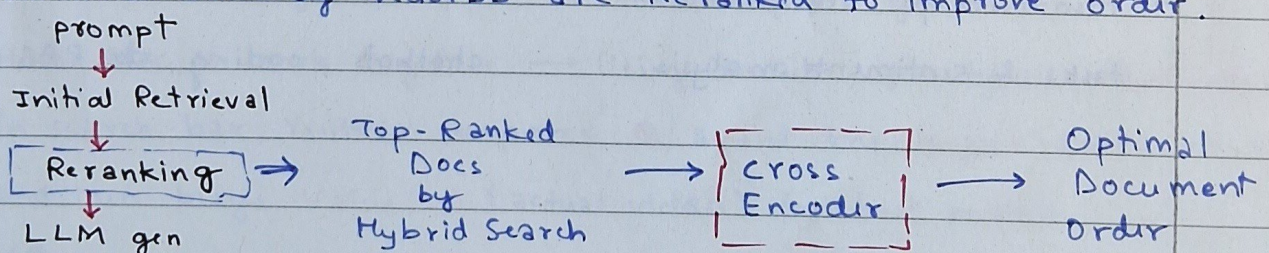 to improve order.
prompt
↓
Initial Retrieval
↓
Reranking → Top-Ranked Docs by Hybrid Search → Cross Encoder → Optimal Document Order
↓
LLM gen